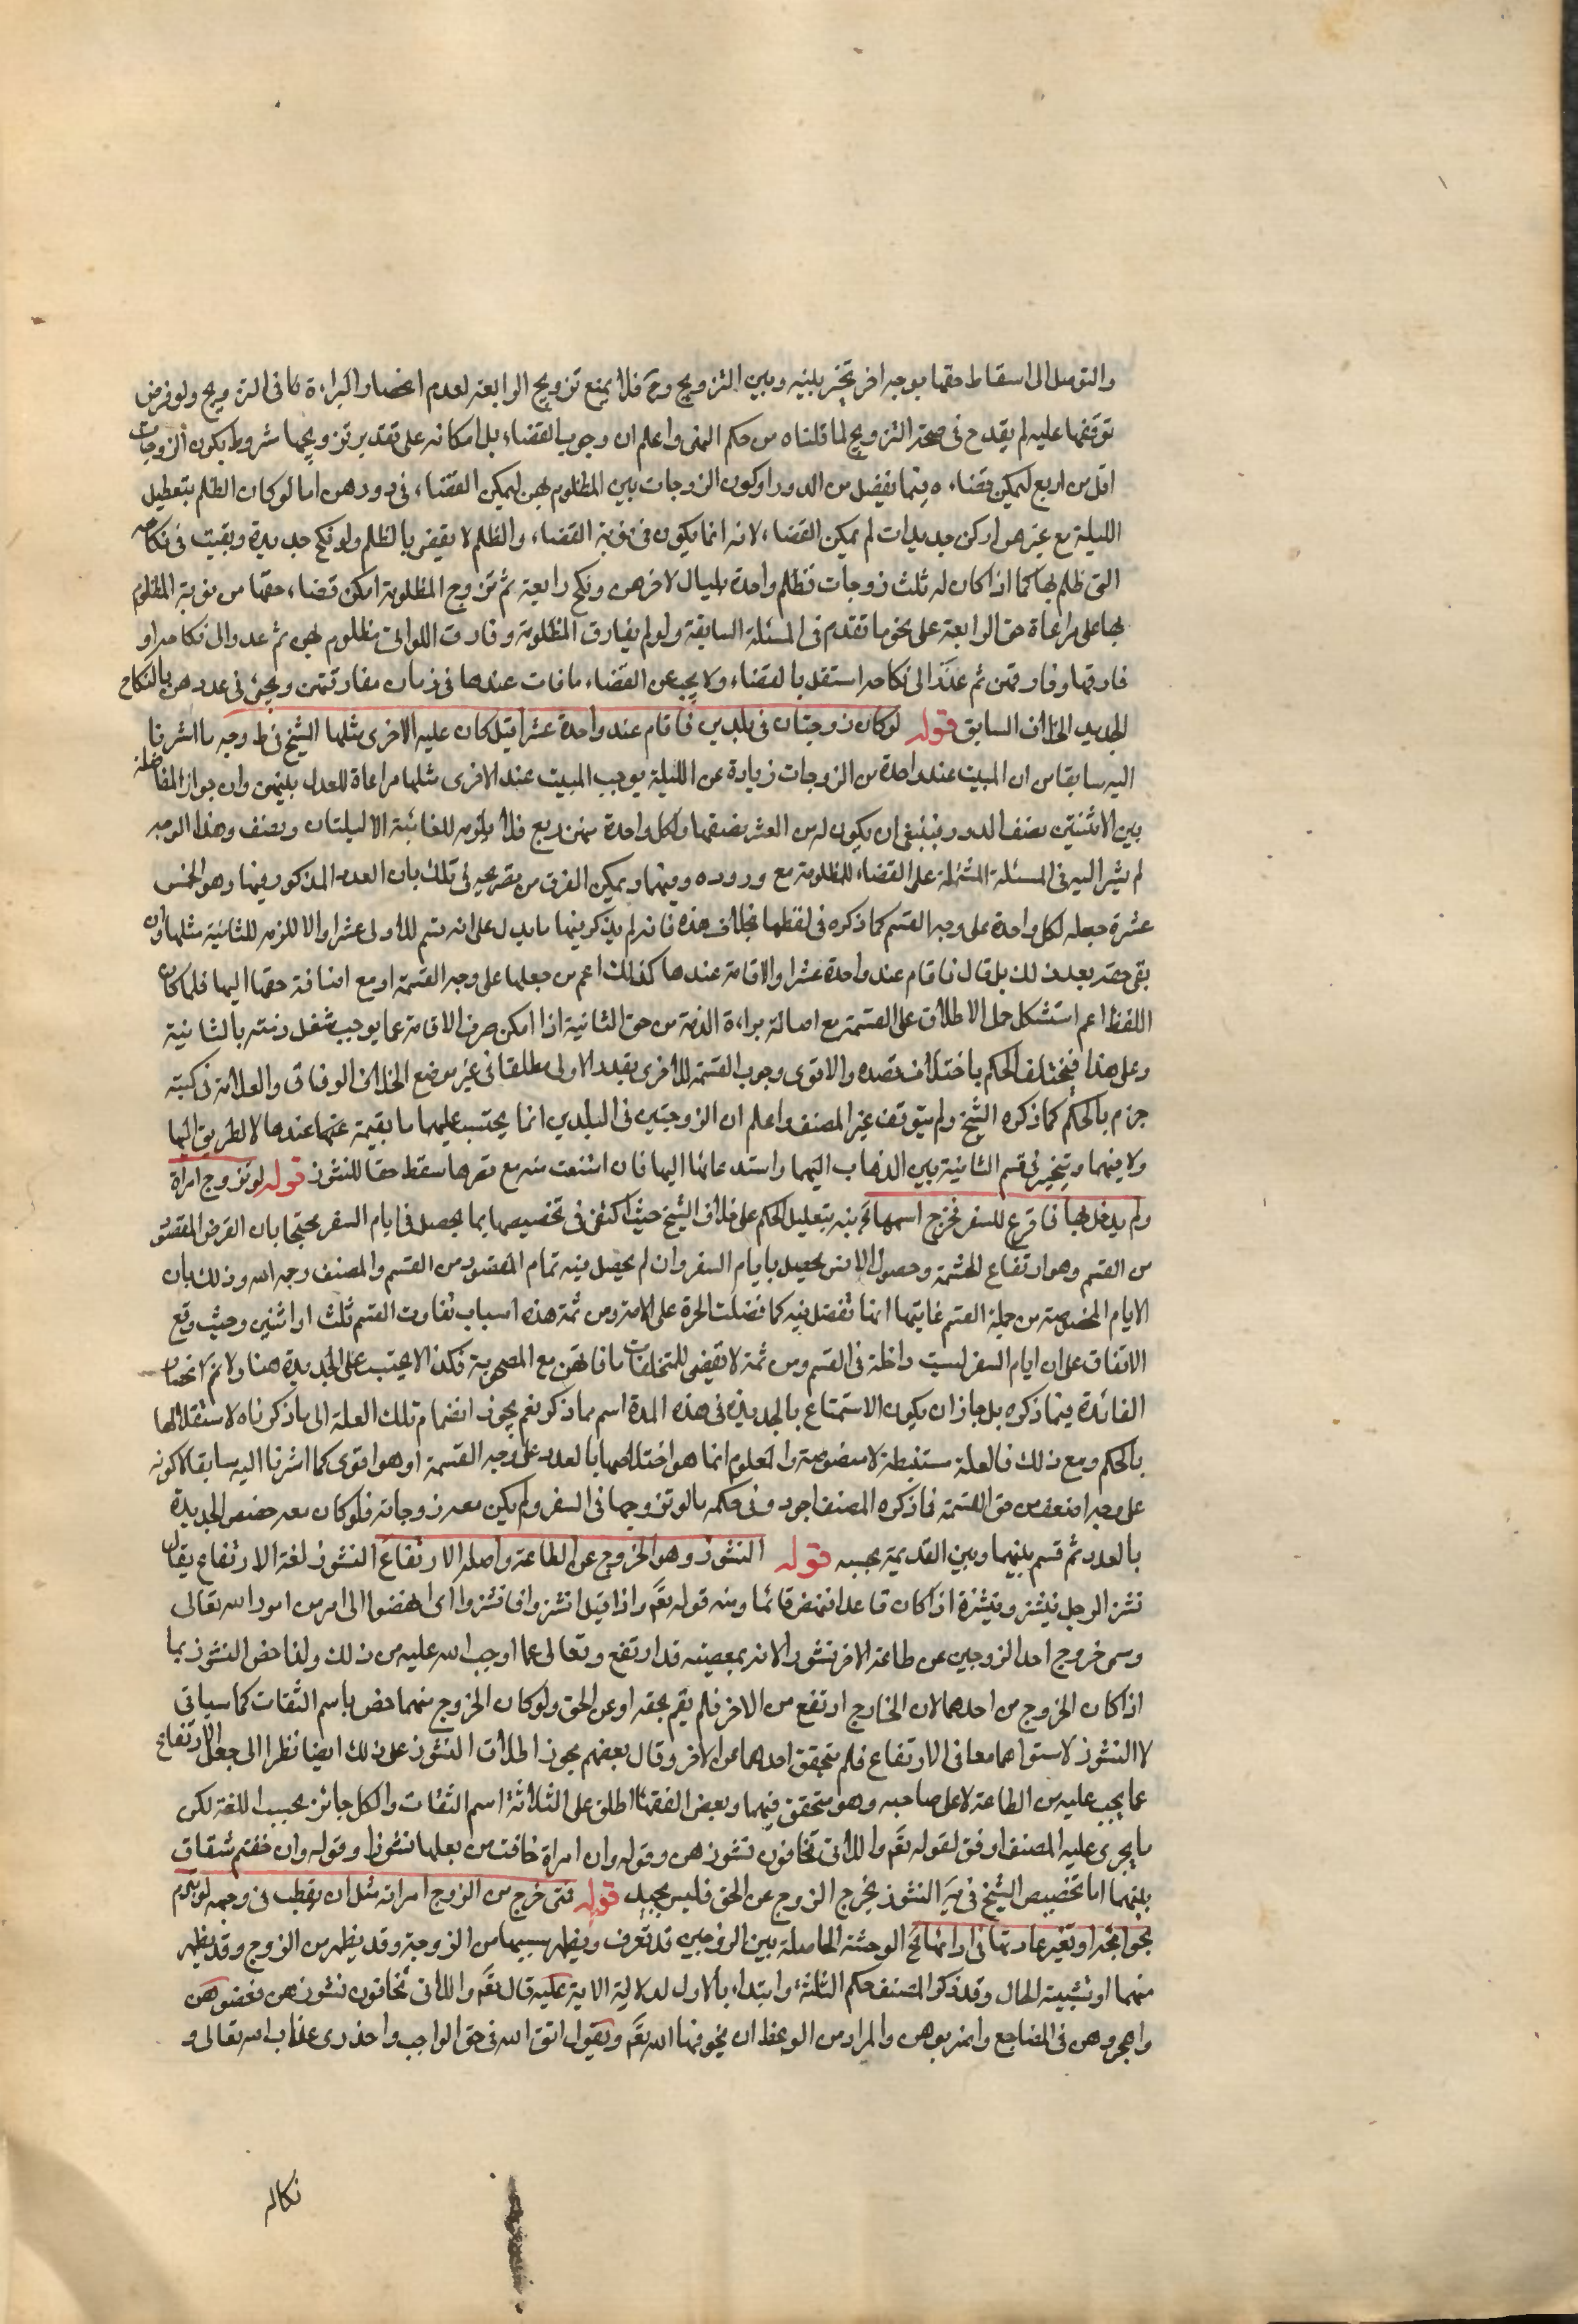 والتوصل الى اسقاط حقها بوجه اخر تخير بينه وبين التزويج وح فلا يمنع تزويج الرابعة لعدم انحصار البراءة كا فى التزويج ولو فرض
توقفها عليه لم يقدح فى صحة التزويج لما قلناه من حكم النهى واعلم ان وجوب القضاء بل امكانه على تقدير تزويجها مشروط بكون الزوجات
اقل من اربع ليمكن قضاءه فيما يفضل من الدور او كون الزوجات بين المظلوم بهن ليمكن القضاء فى دورهن اما لو كان الظلم بتعطيل
الليلة مع غيرهن او كن جديدات لم يمكن القضاء لانه انما يكون فى نوبة القضاء والظلم لا يقضى بالظلم ولو نكح جديدة وبقيت فى نكاحه
التى ظلم بها كما اذا كان له ثلث زوجات فظلم واحدة بليال لاخرهن ونكح رابعة ثم تزوج المظلومة امكن قضاء حقها من نوبة المظلوم
بها على مراعاة حق الرابعة على نحو ما تقدم فى المسئلة السابقة ولو لم يفارق المظلومة وفارق اللواتى مظلوم بهن ثم عدو الى نكاحه او
فارقها وفارقهن ثم عدن الى نكاحه استقل بالقضاء ولا يحب عن القضاء ما فات عندها فى زمان مفارقتهن ويجئ فى عددهن بالنكاح
الجديد الخلاف السابق قوله لو كان زوجتان فى بلدين فاقام عند واحدة عشرا قيل كان عليه الاخرى مثلها الشيخ فى ط وجه ما اشرنا
اليه سابقا من ان المبيت عند واحدة من الزوجات زيادة عن الليلة يوجب المبيت عند الاخرى مثلها مراعاة للعدل بينهن وان جواز المفاضلة
بين الاثنتين بنصف الدور وينبغى ان يكون له من العشر نصفها ولكل واحدة منهن ربع فلا يلزمه للغائبة الا ليلتان ونصف وهذا الوجه
لم يشر اليه فى المسئلة المشتملة على القضاء للمظلومة مع وروده فيها ويمكن الفرق من تصريحه فى تلك بان العدد المذكور فيها وهو الخمس
عشرة جعله لكل واحدة على وجه القسم كما ذكره فى لفظها بخلاف هذه فانه لم يذكر فيها ما يدل على انه قسم للاولى عشرا والا للزمه للثانية مثلها وان
بقى حقه بعد ذلك بل قال فاقام عند واحدة عشرا والاقامة عندها كذلك اعم من جعلها على وجه القسمة او مع اضافة حقها اليها فلما كان
اللفظ اعم استشكل حمل الاطلاق على القسمة مع اصالة براءة الذمة من حق الثانية اذا امكن صرف الاقامة عما يوجب شغل ذمته بالثانية
وعلى هذا فيختلف الحكم باختلاف قصده والاقوى وجوب القسمة للاخرى بقدر الاولى مطلقا فى غير موضع الخلاف الوفاق والعلامة فى كتبه
جزم بالحكم كما ذكره الشيخ ولم يتوقف غير المصنف واعلم ان الزوجتين فى البلدين انما يحتسب عليهما ما يقيمه عنهما عندها لا لطريق اليها
ولا فيهما ويتخير فى قسم الثانية بين الذهاب اليهما واستدعائها اليها فان امتنعت منه مع قدرها سقط حقا للنشوز قوله لو تزوج امراة
ولم يدخل بها فاقرع للسفر فخرج اسمها الخ نبه بتعليل الحكم على خلاف الشيخ حيث اكتفى فى تخصيصها بما يحصل فى ايام السفر محتجا بان الغرض المقصود
من القسم وهو ارتفاع الحشمة وحصول الانس يحصل بايام السفر وان لم يحصل فيه تمام المقصود من القسم والمصنف رحمه الله رد ذلك بان
الايام المخصوصة من جملة القسم غايتها انها تفضل فيه كما فضلت الحرة على الامة ومن ثمة هذه اسباب تفاوت القسم ثلث او اثنين وحيث وقع
الاتفاق على ان ايام السفر ليست داخلة فى القسم ومن ثمة لا تقضى للمتخلفات ما فاتهن مع المصحوبة فكذا لا يحتسب على الجديدة هنا ولا نم انحصار
الفائدة فيما ذكره بل جاز ان يكون الاستمتاع بالجديدة فى هذه المدة اسم مما ذكر نعم يجوز انضمام تلك العلة الى ما ذكرناه لاستقلالها
بالحكم ومع ذلك فالعلة مستنبطة لا منصوصة والمعلوم انما هو اختصاصها بالعدد على وجه القسمة او هو اقوى كما اشرنا اليه سابقا لا كونه
على وجه اضعف من حق القسمة فما ذكره المصنف اجود وفى حكمه ما لو تزوجها فى السفر ولم يكن معه زوجاته فلو كان معه خصص الجديدة
بالعدد ثم قسم بينهما وبين القديمة بحسبه قوله النشوز وهو الخروج عن الطاعة واصله الارتفاع النشوز لغة الارتفاع يقال
نشز الرجل ينشز وينشزة اذا كان قاعدا فنهض قائما ومنه قوله تعم واذا قيل انشزوا فانشزوا اى انهضوا الى امر من امور الله تعالى
وسمى خروج احد الزوجين عن طاعة الاخر نشوزا لانه بمعصيته قد ارتفع وتعالى عما اوجب الله عليه من ذلك ولذا خص النشوز بما
اذا كان الخروج من احدهما لان الخارج ارتفع من الاخر فلم يقم بحقه او عن الحق ولو كان الخروج منهما خص باسم الشقاق كما سياتى
لا النشوز لاستواهما معا فى الارتفاع فلم يتحقق احدهما عن الاخر وقال بعضهم يجوز اطلاق النشوز على ذلك ايضا نظرا الى جعل الارتفاع
عما يجب عليه من الطاعة لا على صاحبه وهو متحقق فيهما وبعض الفقها اطلق على الثلاثة اسم الشقاق والكل جائز بحسب اللغة لكن
ما يجرى عليه المصنف اوفق لقوله تعم واللاتى تخافون نشوزهن وقوله وان امراة خافت من بعلها نشوزا وقوله وان خفتم شقاق
بينهما اما تخصيص الشيخ فى يه النشوز بخروج الزوج عن الحق فليس بجيد قوله فمتى خرج من الزوج امراته مثل ان يقطب فى وجهه او يتبرم
بحوائجه او تغير عادتها فى ادائها الخ الوحشة الحاصلة بين الزوجين قد تعرف ويظهر سببها من الزوجة وقد يظهر من الزوج وقد يظهر
منهما او تشبيه الحال وقد ذكر المصنف حكم الثلثة وابتداء بالاول لدلالة الاية عليه قال تعم واللاتى تخافون نشوزهن فعضوهن
واهجروهن فى المضاجع واضربوهن والمراد من الوعظ ان يخوفها الله تعم ويقول اتق الله فى حق الواجب واحذرى عذاب الله تعالى و
نكاله